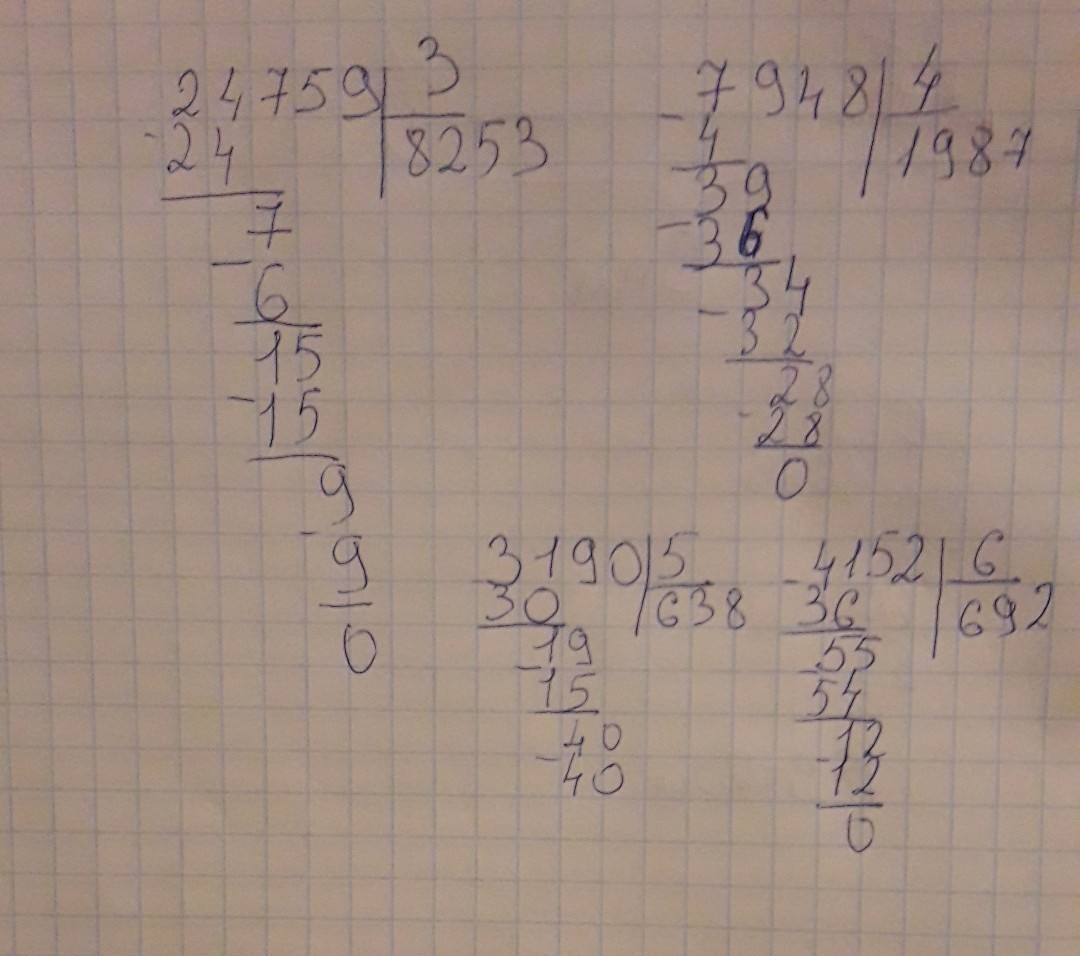 24759 3
- 24 8253
7
- 6
15
- 15
9
- 9
0
- 7948 4
4 1987
39
- 36
34
- 32
28
- 28
0
3190 5
30 638
19
- 15
40
- 40
- 4152 6
36 692
- 55
54
12
- 12
0